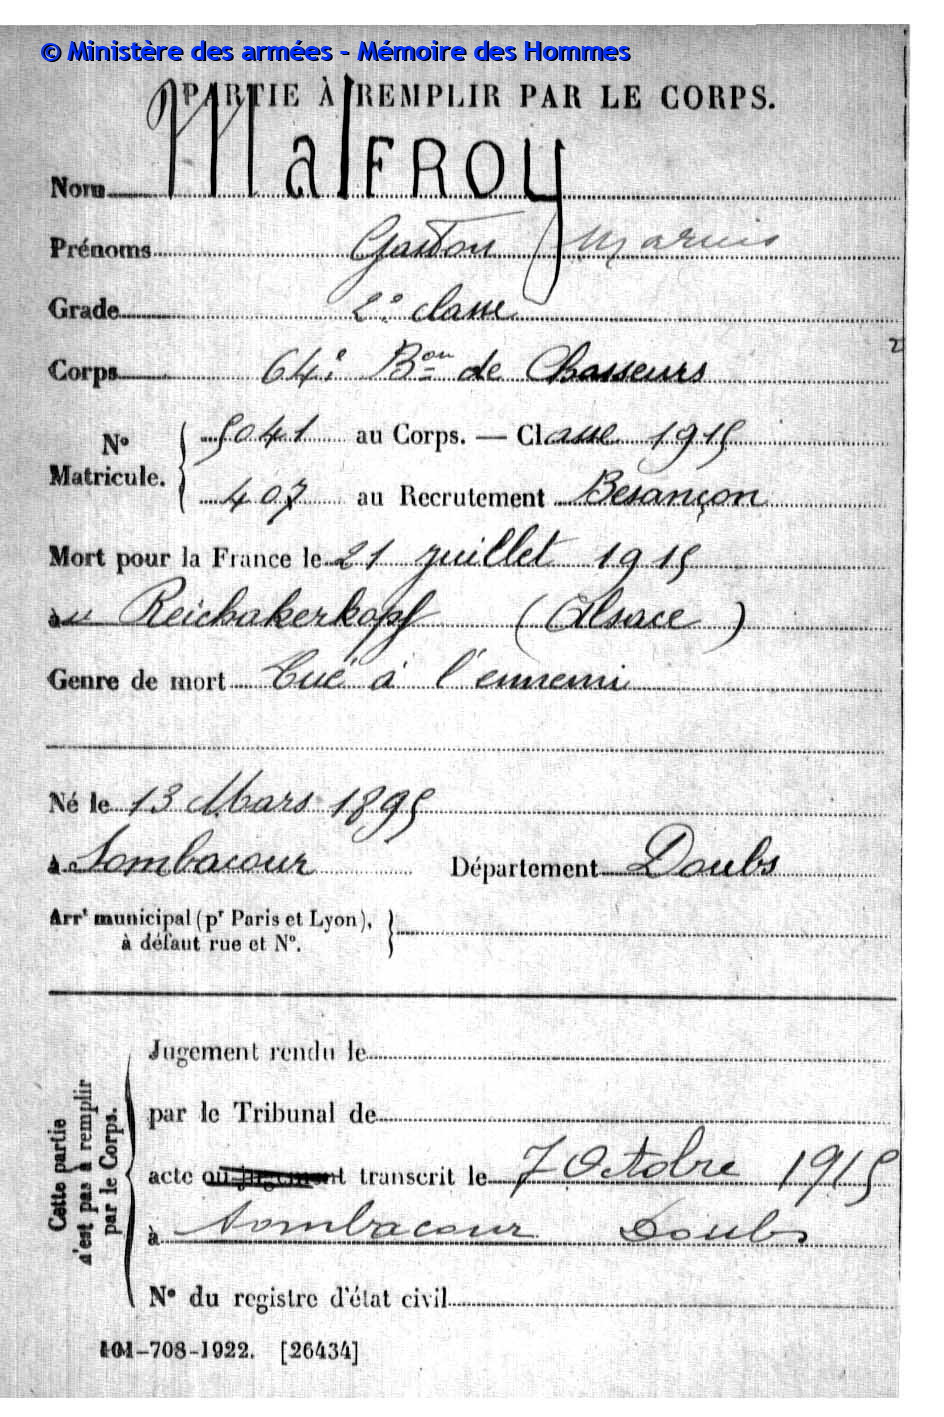 © Ministère des armées - Mémoire des Hommes
PARTIE À REMPLIR PAR LE CORPS.
Nom Malfroy
Prénoms Gaston Marius
Grade 2e classe
2
Corps 64e Bon de Chasseurs
N° Matricule. { 5041 au Corps. — Classe 1915
407 au Recrutement Besançon
Mort pour la France le 21 juillet 1915
au Reichakerkopf (Alsace)
Genre de mort Tué à l'ennemi
Né le 13 Mars 1895
à Sombacour Département Doubs
Arrt municipal (pr Paris et Lyon),
à défaut rue et N°.
Cette partie
n'est pas à remplir
par le Corps.
Jugement rendu le
par le Tribunal de
acte ou jugement transcrit le 7 Octobre 1915
à Sombacour Doubs
N° du registre d'état civil
101-708-1922. [26434]